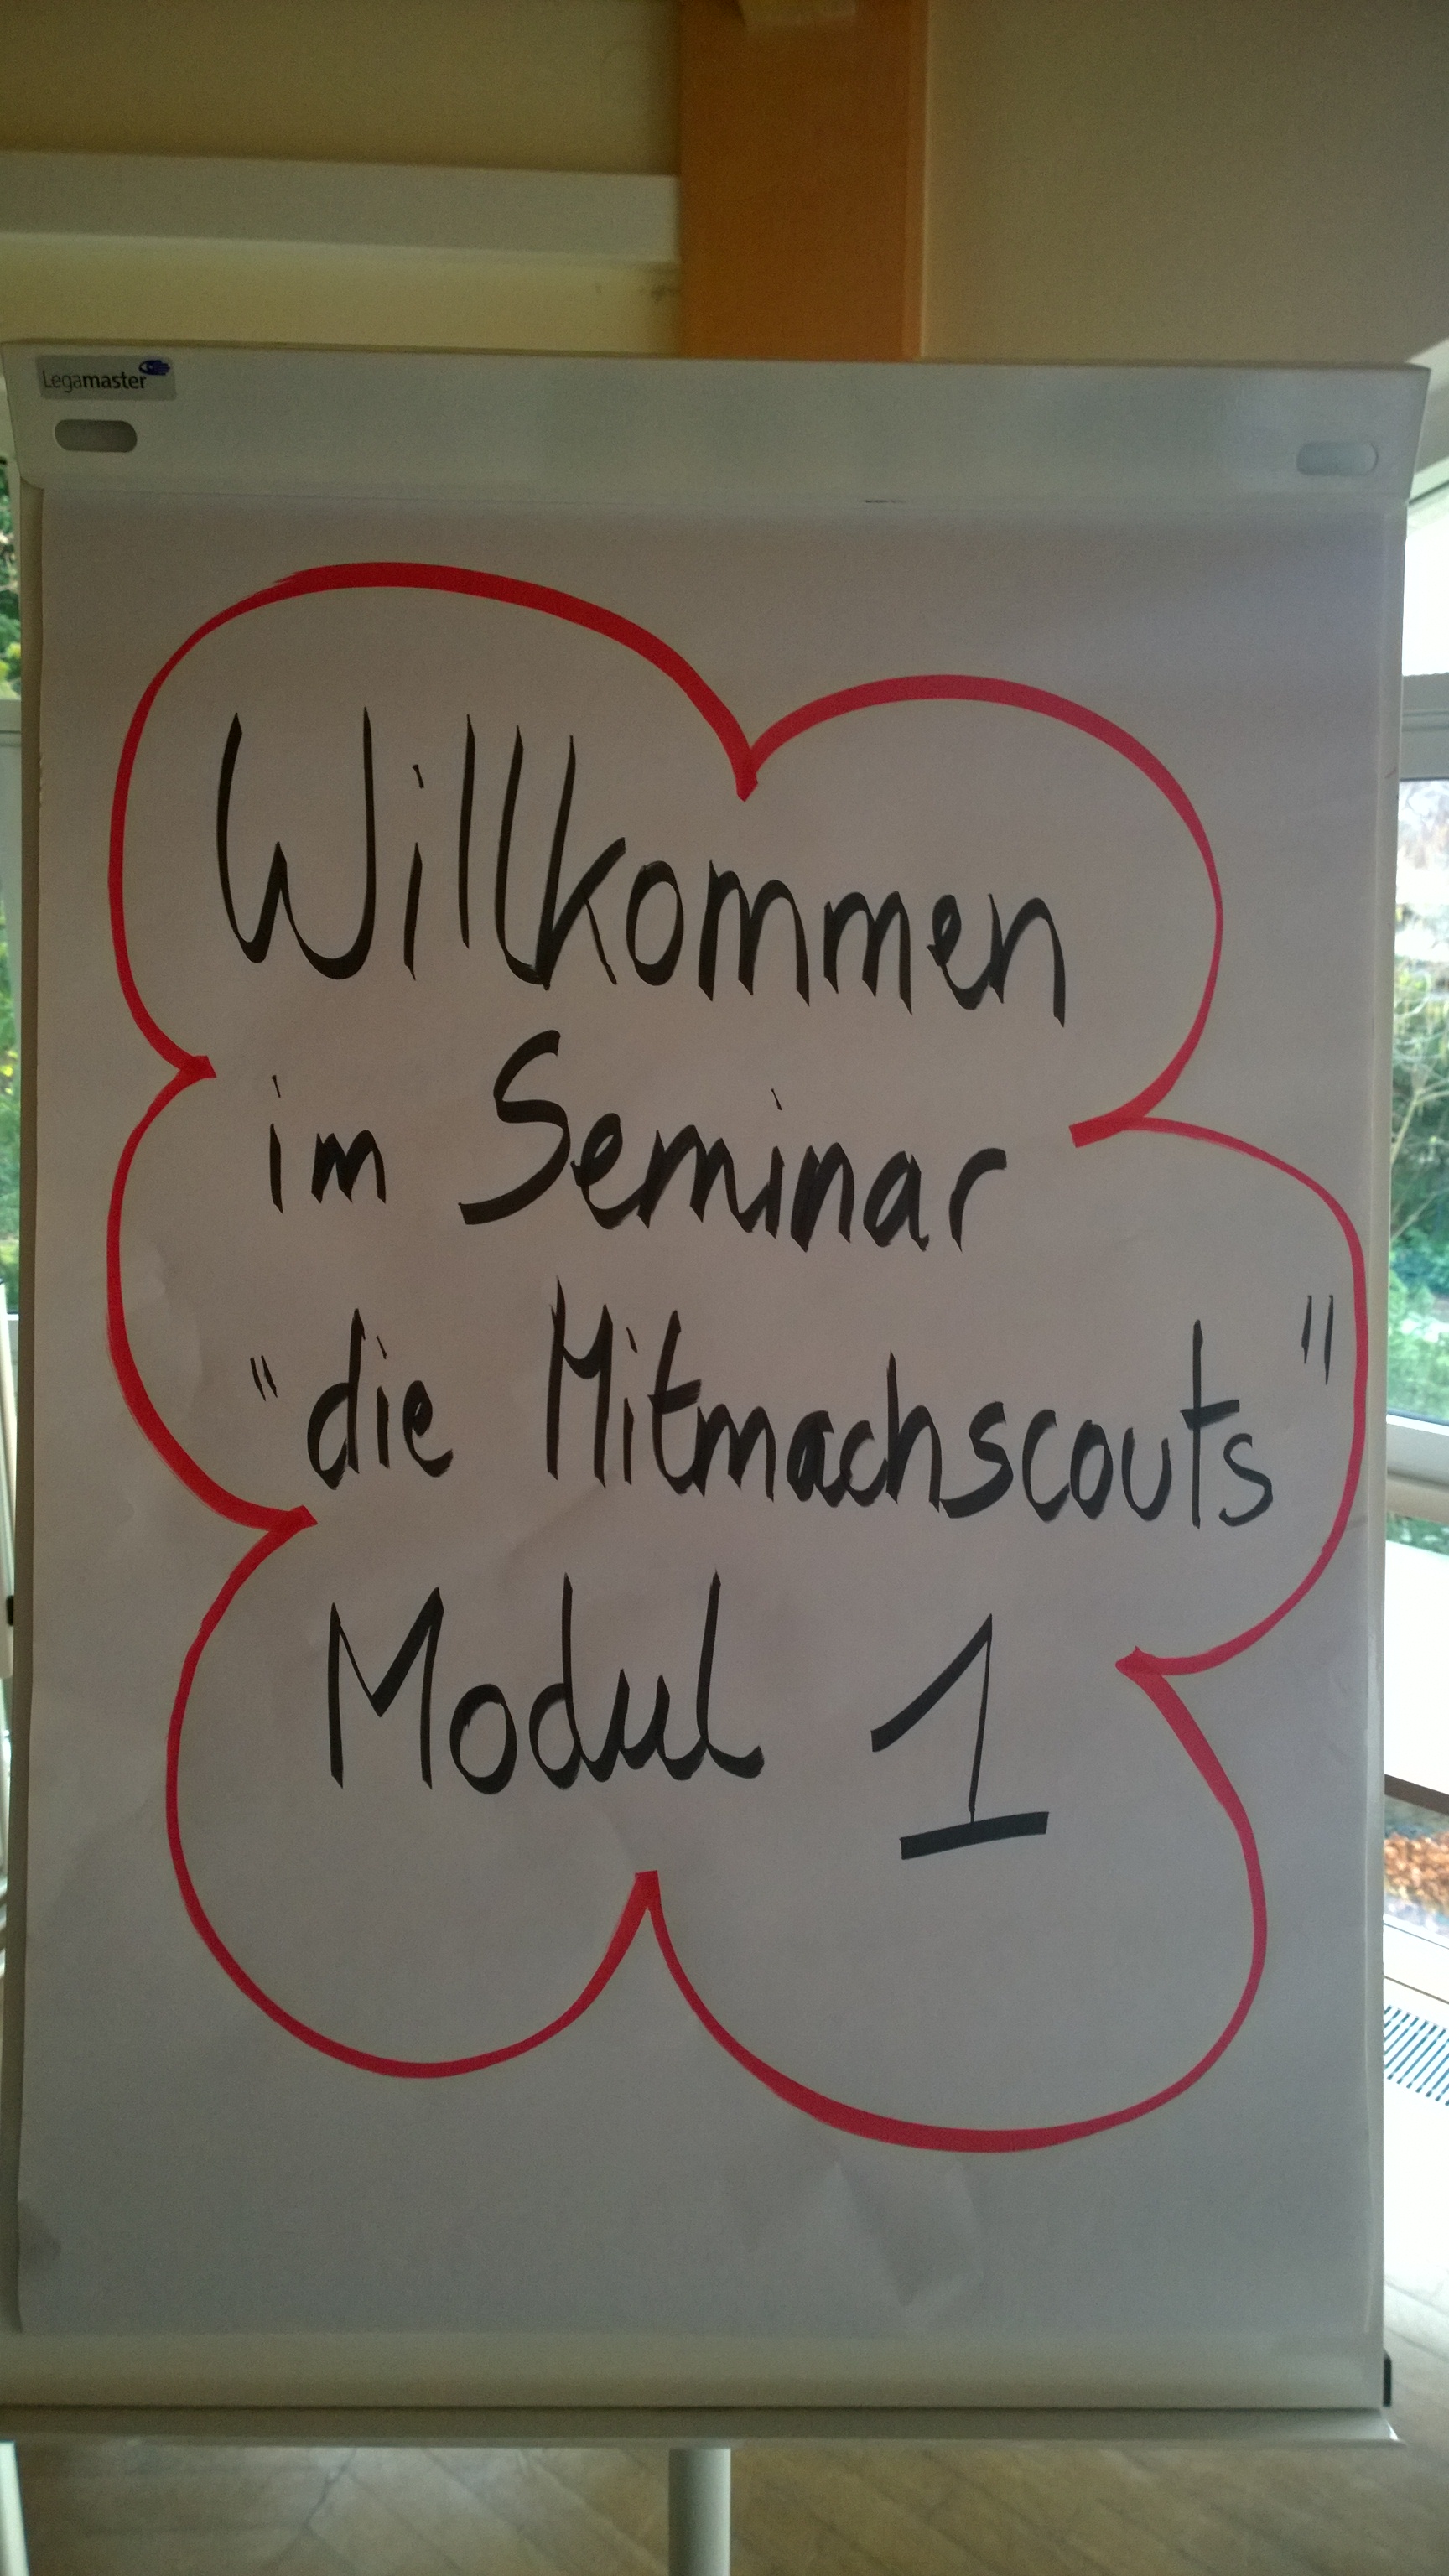 Legamaster
Willkommen
im Seminar
"die Mitmachscouts"
Modul 1